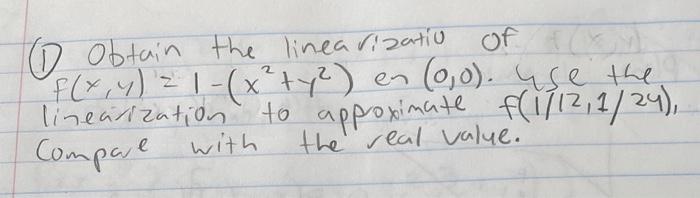 ① Obtain the linearizatio of
f(x,y) = 1-(x²+y²) en (0,0). use the
linearization to approximate f(1/12,1/24),
Compare with the real value.